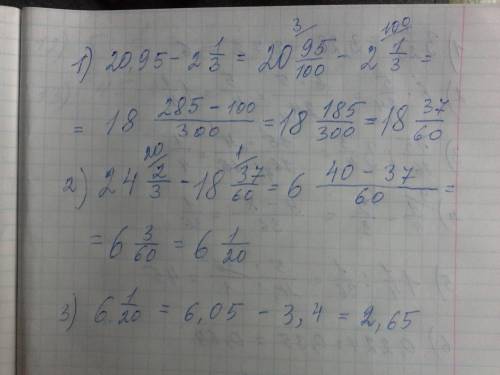 1) 20,95 − 2 1/3 = 20 95/100 3/ − 2 1/3 100/ =
= 18 (285 − 100)/300 = 18 185/300 = 18 37/60
2) 24 2/3 20/ − 18 37/60 1/ = 6 (40 − 37)/60 =
= 6 3/60 = 6 1/20
3) 6 1/20 = 6,05 − 3,4 = 2,65